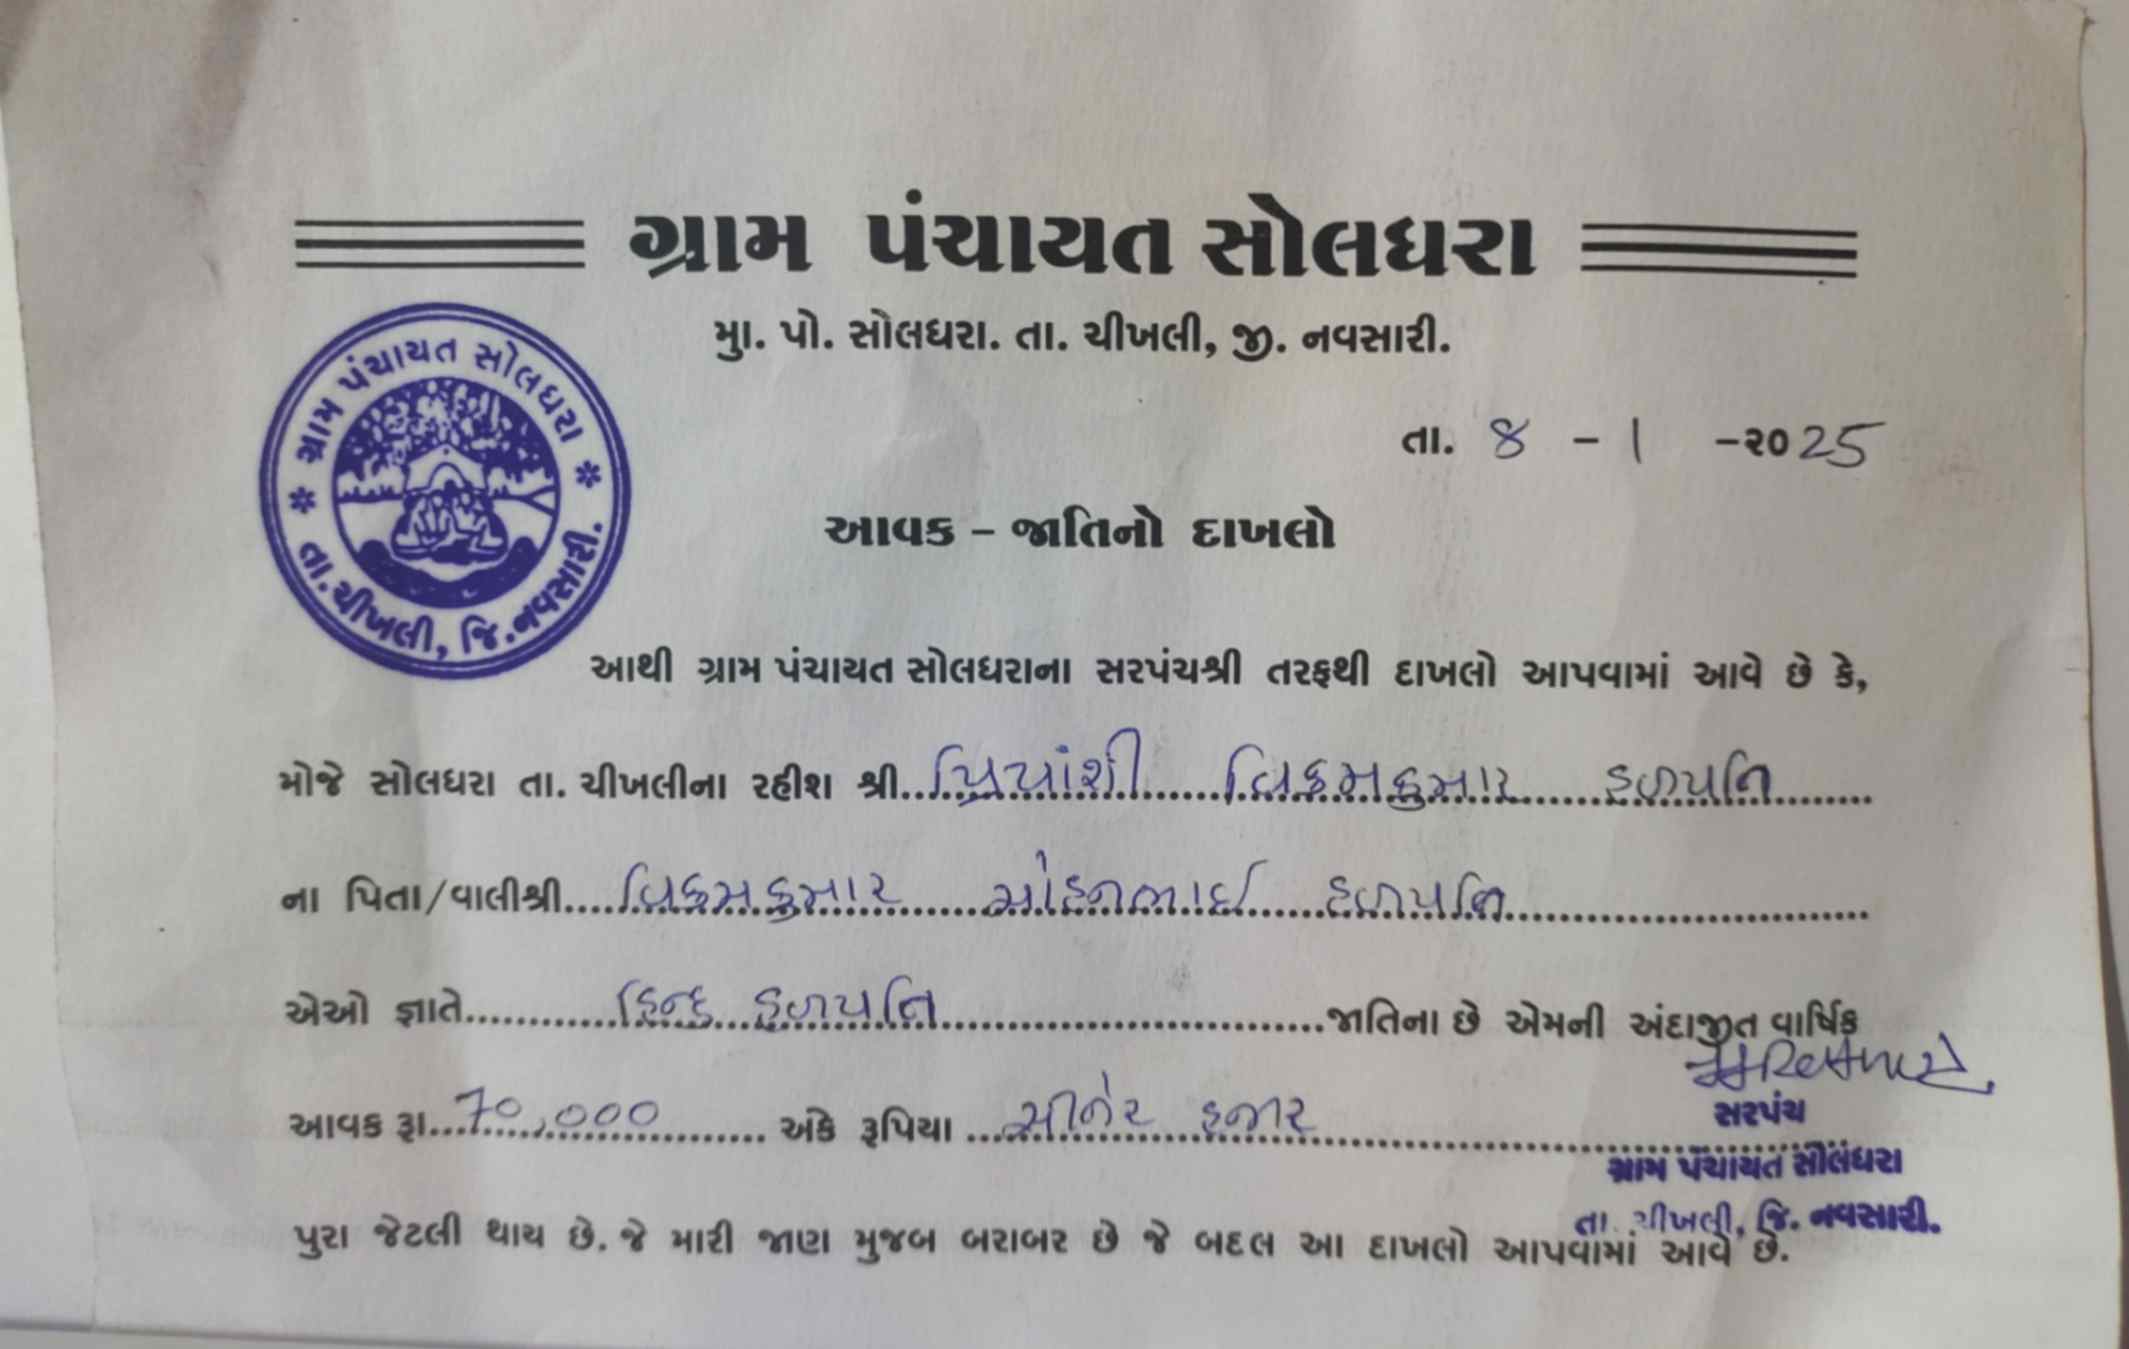 ગ્રામ પંચાયત સોલધરા
મુા. પો. સોલધરા. તા. ચીખલી, જી. નવસારી.
ગ્રામ પંચાયત સોલધરા
તા. ચીખલી, જિ. નવસારી.
તા. 8 - 1 -૨૦25
આવક - જાતિનો દાખલો
આથી ગ્રામ પંચાયત સોલધરાના સરપંચશ્રી તરફથી દાખલો આપવામાં આવે છે કે,
મોજે સોલધરા તા. ચીખલીના રહીશ શ્રી..પ્રિયાંશી વિક્રમકુમાર હળપતિ
ના પિતા/વાલીશ્રી....વિક્રમકુમાર મોહનભાઈ હળપતિ
એઓ જ્ઞાતે હિન્દુ હળપતિ જાતિના છે એમની અંદાજીત વાર્ષિક
આવક રૂા...70,000 અંકે રૂપિયા ...સીત્તેર હજાર
સરપંચ
ગ્રામ પંચાયત સોલધરા
તા. ચીખલી, જિ. નવસારી.
પુરા જેટલી થાય છે. જે મારી જાણ મુજબ બરાબર છે જે બદલ આ દાખલો આપવામાં આવે છે.